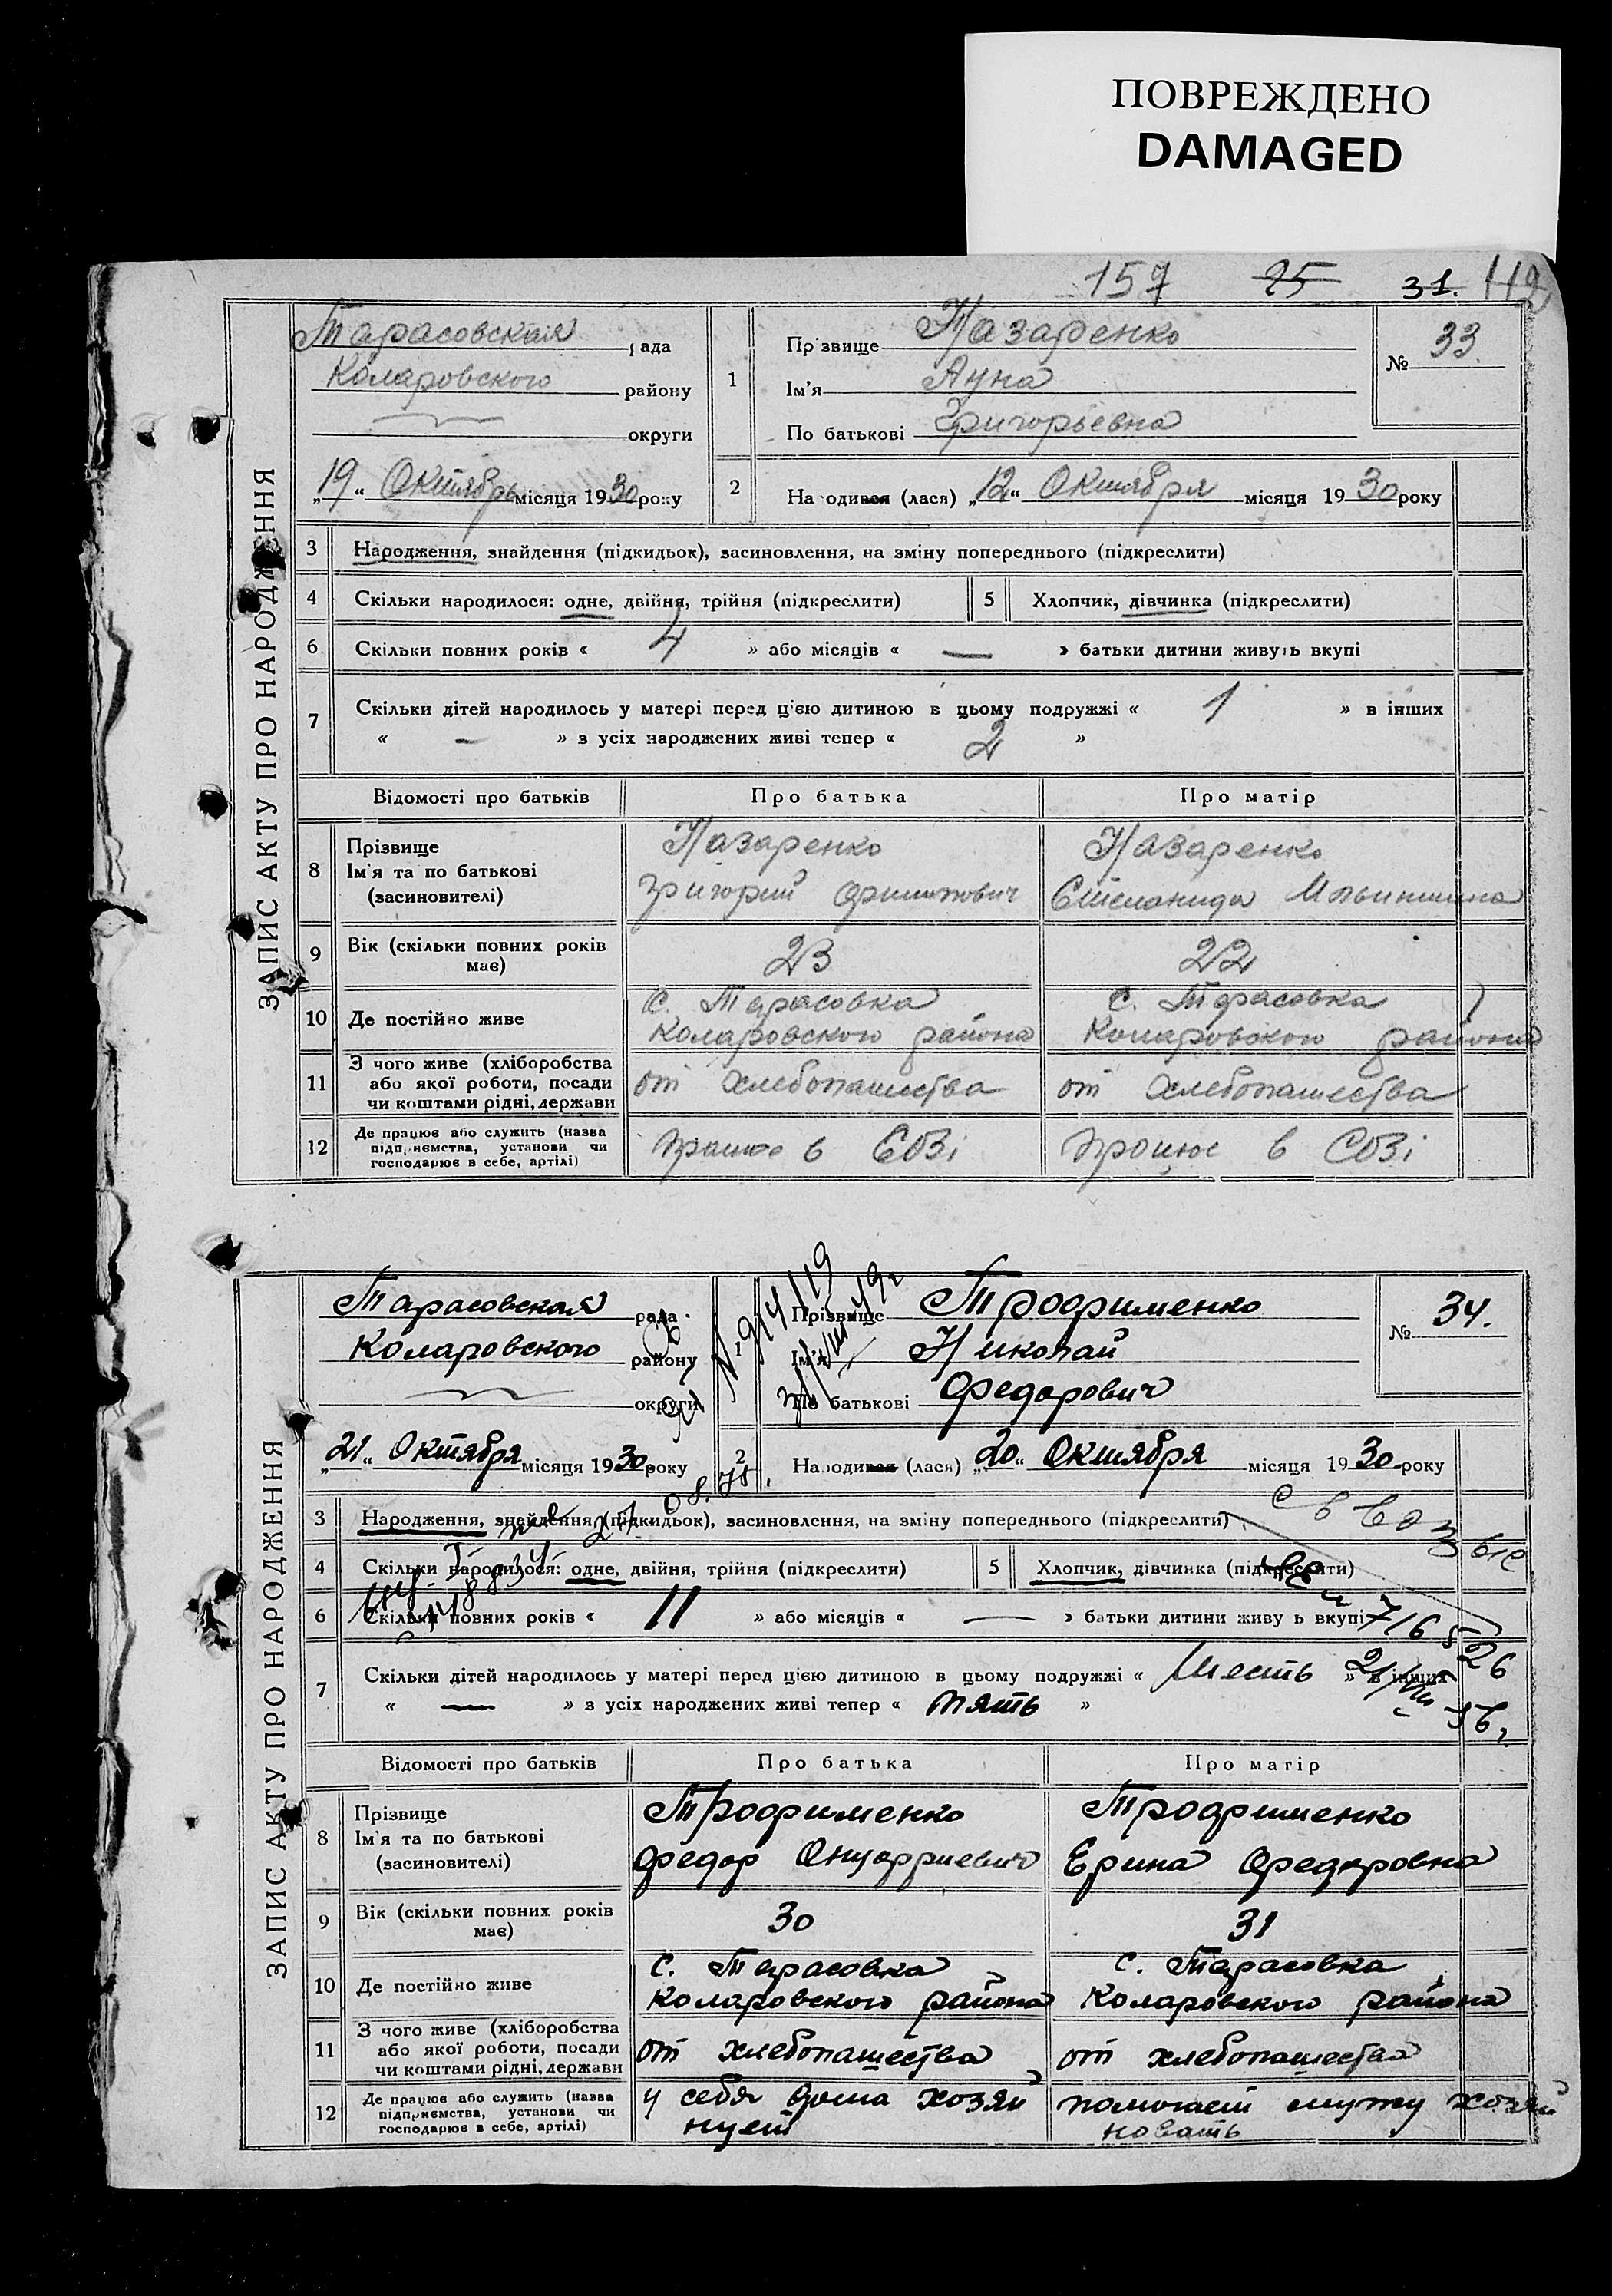 ПОВРЕЖДЕНО
DAMAGED
157 25 31. 112
ЗАПИС АКТУ ПРО НАРОДЖЕННЯ
Тарасовская рада
Коларовского району
округи
„19“ Октябрь місяця 1930 року
1
Прізвище Назаренко
Ім'я Анна
По батькові Григорьевна
№ 33
2 Народився (лася) „12“ Октября місяця 1930 року
3 Народження, знайдення (підкидьок), засиновлення, на зміну попереднього (підкреслити)
4 Скільки народилося: одне, двійня, трійня (підкреслити) 5 Хлопчик, дівчинка (підкреслити)
6 Скільки повних років « 4 » або місяців « — » батьки дитини живуть вкупі
7 Скільки дітей народилось у матері перед цією дитиною в цьому подружжі « 1 » в інших
« — » з усіх народжених живі тепер « 2 »
Відомості про батьків Про батька Про матір
8 Прізвище
Ім'я та по батькові
(засиновителі)
Назаренко
Григорий Филипович
Назаренко
Степанида
9 Вік (скільки повних років має) 23 22
10 Де постійно живе
с. Тарасовка
Коларовского района
с. Тарасовка
Коларовского района
11 З чого живе (хліборобства
або якої роботи, посади
чи коштами рідні, держави
от хлебопашества
от хлебопашества
12 Де працює або служить (назва
підприємства, установи чи
господарює в себе, артілі)
працює в СОЗі
працює в СОЗі
ЗАПИС АКТУ ПРО НАРОДЖЕННЯ
Тарасовская рада
Коларовского району
округи
„21“ Октября місяця 1930 року
Прізвище Трофименко
Ім'я Николай
По батькові Федорович
№ 34.
2 Народився (лася) „20“ Октября місяця 1930 року
3 Народження, знайдення (підкидьок), засиновлення, на зміну попереднього (підкреслити)
4 Скільки народилося: одне, двійня, трійня (підкреслити) 5 Хлопчик, дівчинка (підкреслити)
6 Скільки повних років « 11 » або місяців « — » батьки дитини живуть вкупі
7 Скільки дітей народилось у матері перед цією дитиною в цьому подружжі « Шесть » в інших
« — » з усіх народжених живі тепер « пять »
Відомості про батьків Про батька Про матір
8 Прізвище
Ім'я та по батькові
(засиновителі)
Трофименко
Федор Онуфриевич
Трофименко
Ерина Федоровна
9 Вік (скільки повних років має) 30 31
10 Де постійно живе
с. Тарасовка
Коларовского района
с. Тарасовка
Коларовского района
11 З чого живе (хліборобства
або якої роботи, посади
чи коштами рідні, держави
от хлебопашества
от хлебопашества
12 Де працює або служить (назва
підприємства, установи чи
господарює в себе, артілі)
у себя дома хозяй
нует
помогает мужу хозяй
новать